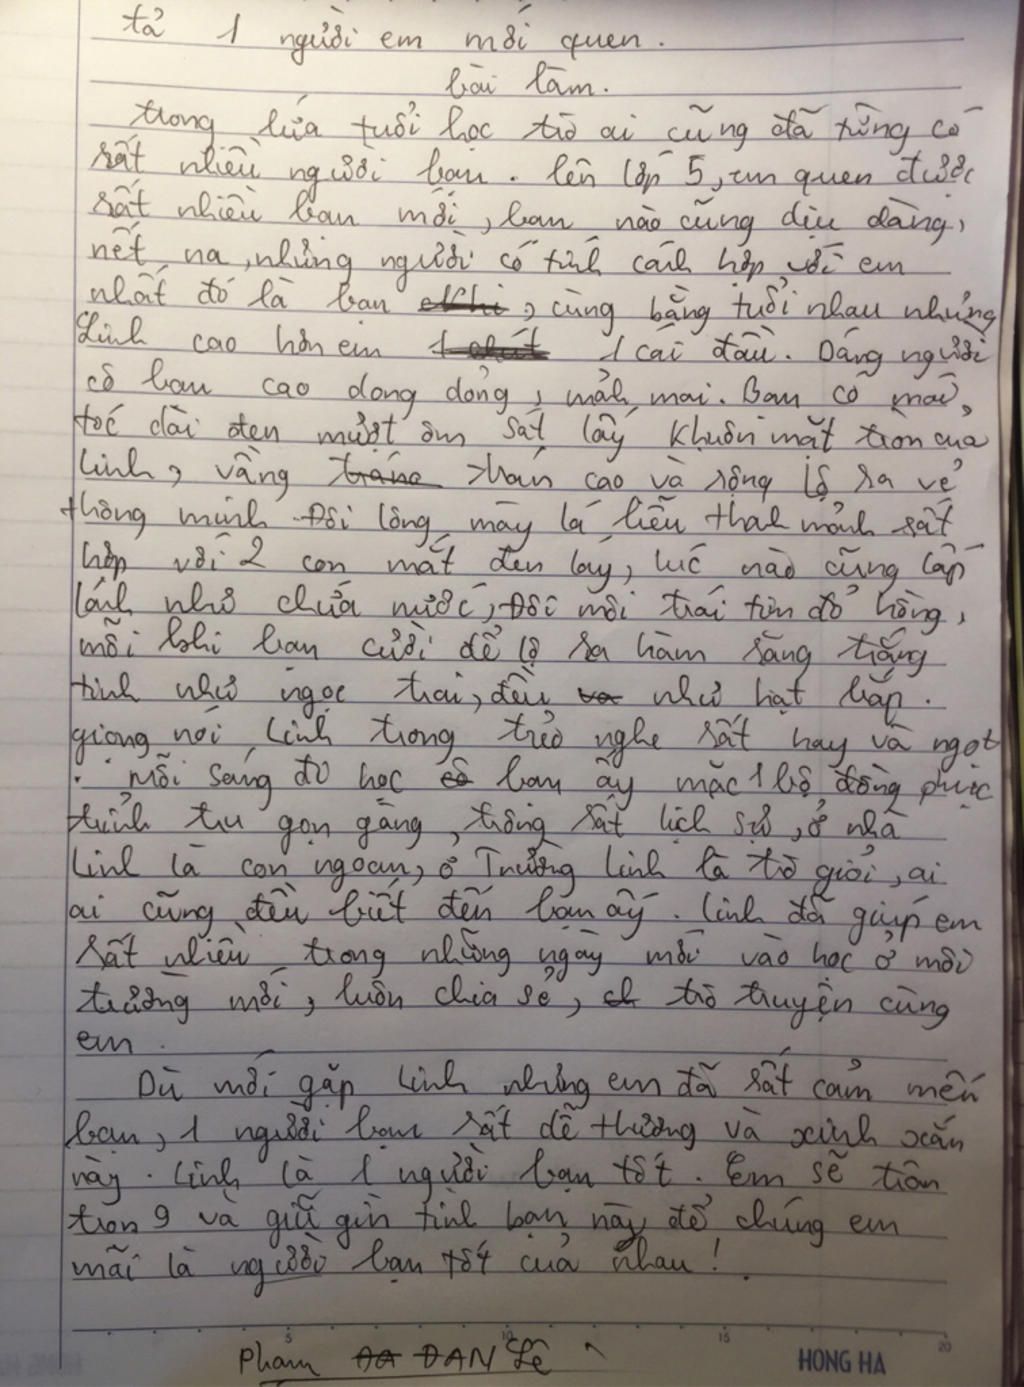 tả 1 người em mới quen.
bài làm.
trong lứa tuổi học trò ai cũng đã từng có
rất nhiều người bạn. lên lớp 5, em quen được
rất nhiều bạn mới, bạn nào cũng dịu dàng,
nết na, nhưng người có tính cách hợp với em
nhất đó là bạn, cùng bằng tuổi nhau nhưng
Linh cao hơn em 1 cái đầu. Dáng người
cô bạn cao dong dỏng, mảnh mai. Bạn có mái
tóc dài đen mượt ôm sát lấy khuôn mặt tròn của
Linh, vầng trán cao và rộng lộ ra vẻ
thông minh. Đôi lông mày lá liễu thanh mảnh rất
hợp với 2 con mắt đen láy, lúc nào cũng lấp
lánh như chứa nước, Đôi môi trái tim đỏ hồng,
mỗi khi bạn cười để lộ ra hàm răng trắng
tinh như ngọc trai, đều như hạt bắp.
giọng nói Linh trong trẻo nghe rất hay và ngọt
. mỗi sáng đi học bạn ấy mặc 1 bộ đồng phục
chỉnh tru gọn gàng, trông rất lịch sự, ở nhà
Linh là con ngoan, ở Trường Linh là trò giỏi, ai
ai cũng đều biết đến bạn ấy. Linh đã giúp em
rất nhiều trong những ngày mới vào học ở môi
trường mới, luôn chia sẻ, trò truyện cùng
em.
Dù mới gặp Linh nhưng em đã rất cảm mến
bạn, 1 người bạn rất dễ thương và xinh xắn
này. Linh là 1 người bạn tốt. Em sẽ trân
trọn 9 và giữ gìn tình bạn này để chúng em
mãi là người bạn tốt của nhau!
5 10 15 20
Phạm ĐAN Lê
HONG HA